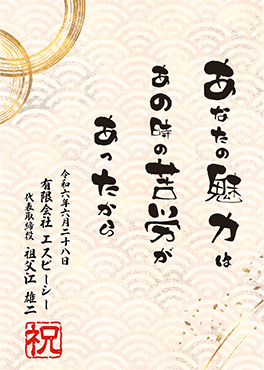 あなたの魅力は
あの時の苦労が
あったから
令和六年六月二十八日
有限会社 エスピーシー
代表取締役 祖父江 雄二
祝